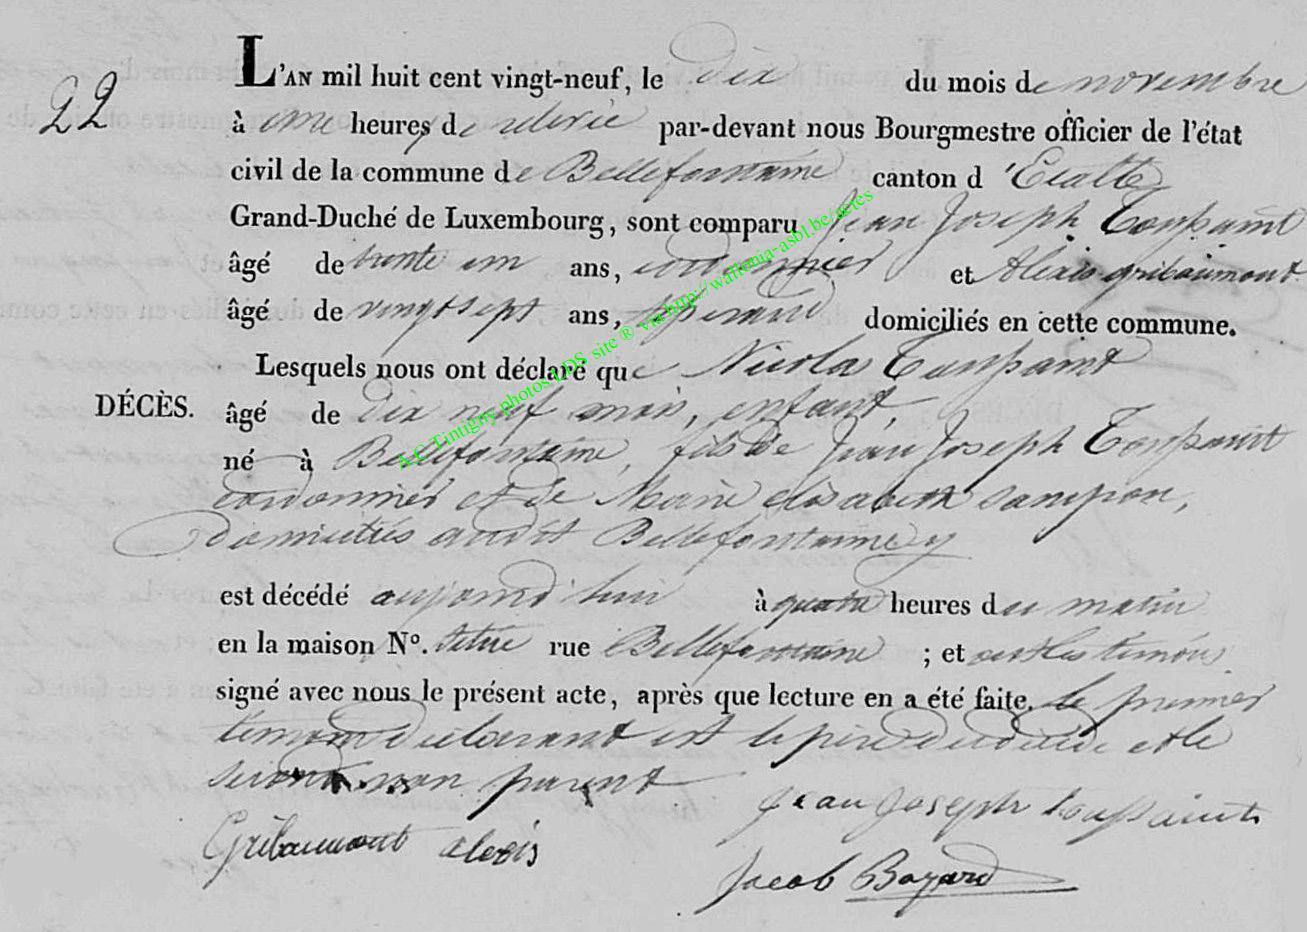 22
L'AN mil huit cent vingt-neuf, le dix du mois de novembre
à une heures de relevée par-devant nous Bourgmestre officier de l'état
civil de la commune de Bellefontaine canton d'Etalle
Grand-Duché de Luxembourg, sont comparu Jean Joseph Toussaint
âgé de trente un ans, cordonnier et Alexis gribaumont
âgé de vingt sept ans, domiciliés en cette commune.
Lesquels nous ont déclaré que Nicolas Toussaint
DÉCÈS. âgé de dix neuf mois, enfant,
né à Bellefontaine, fils de Jean Joseph Toussaint
cordonnier et de Marie elisabeth sampon,
domiciliés audit Bellefontaine
est décédé aujourd'hui à quatre heures du matin
en la maison N°. rue Bellefontaine ; et ont les témoins
signé avec nous le présent acte, après que lecture en a été faite. le premier
témoin déclarant est le père du décédé et le
second non parent
Jean Joseph toussaint
Gribaumont alexis
Jacob Bayard
A.C Tintigny photos LDS site ® via http://wallonia-asbl.be/actes